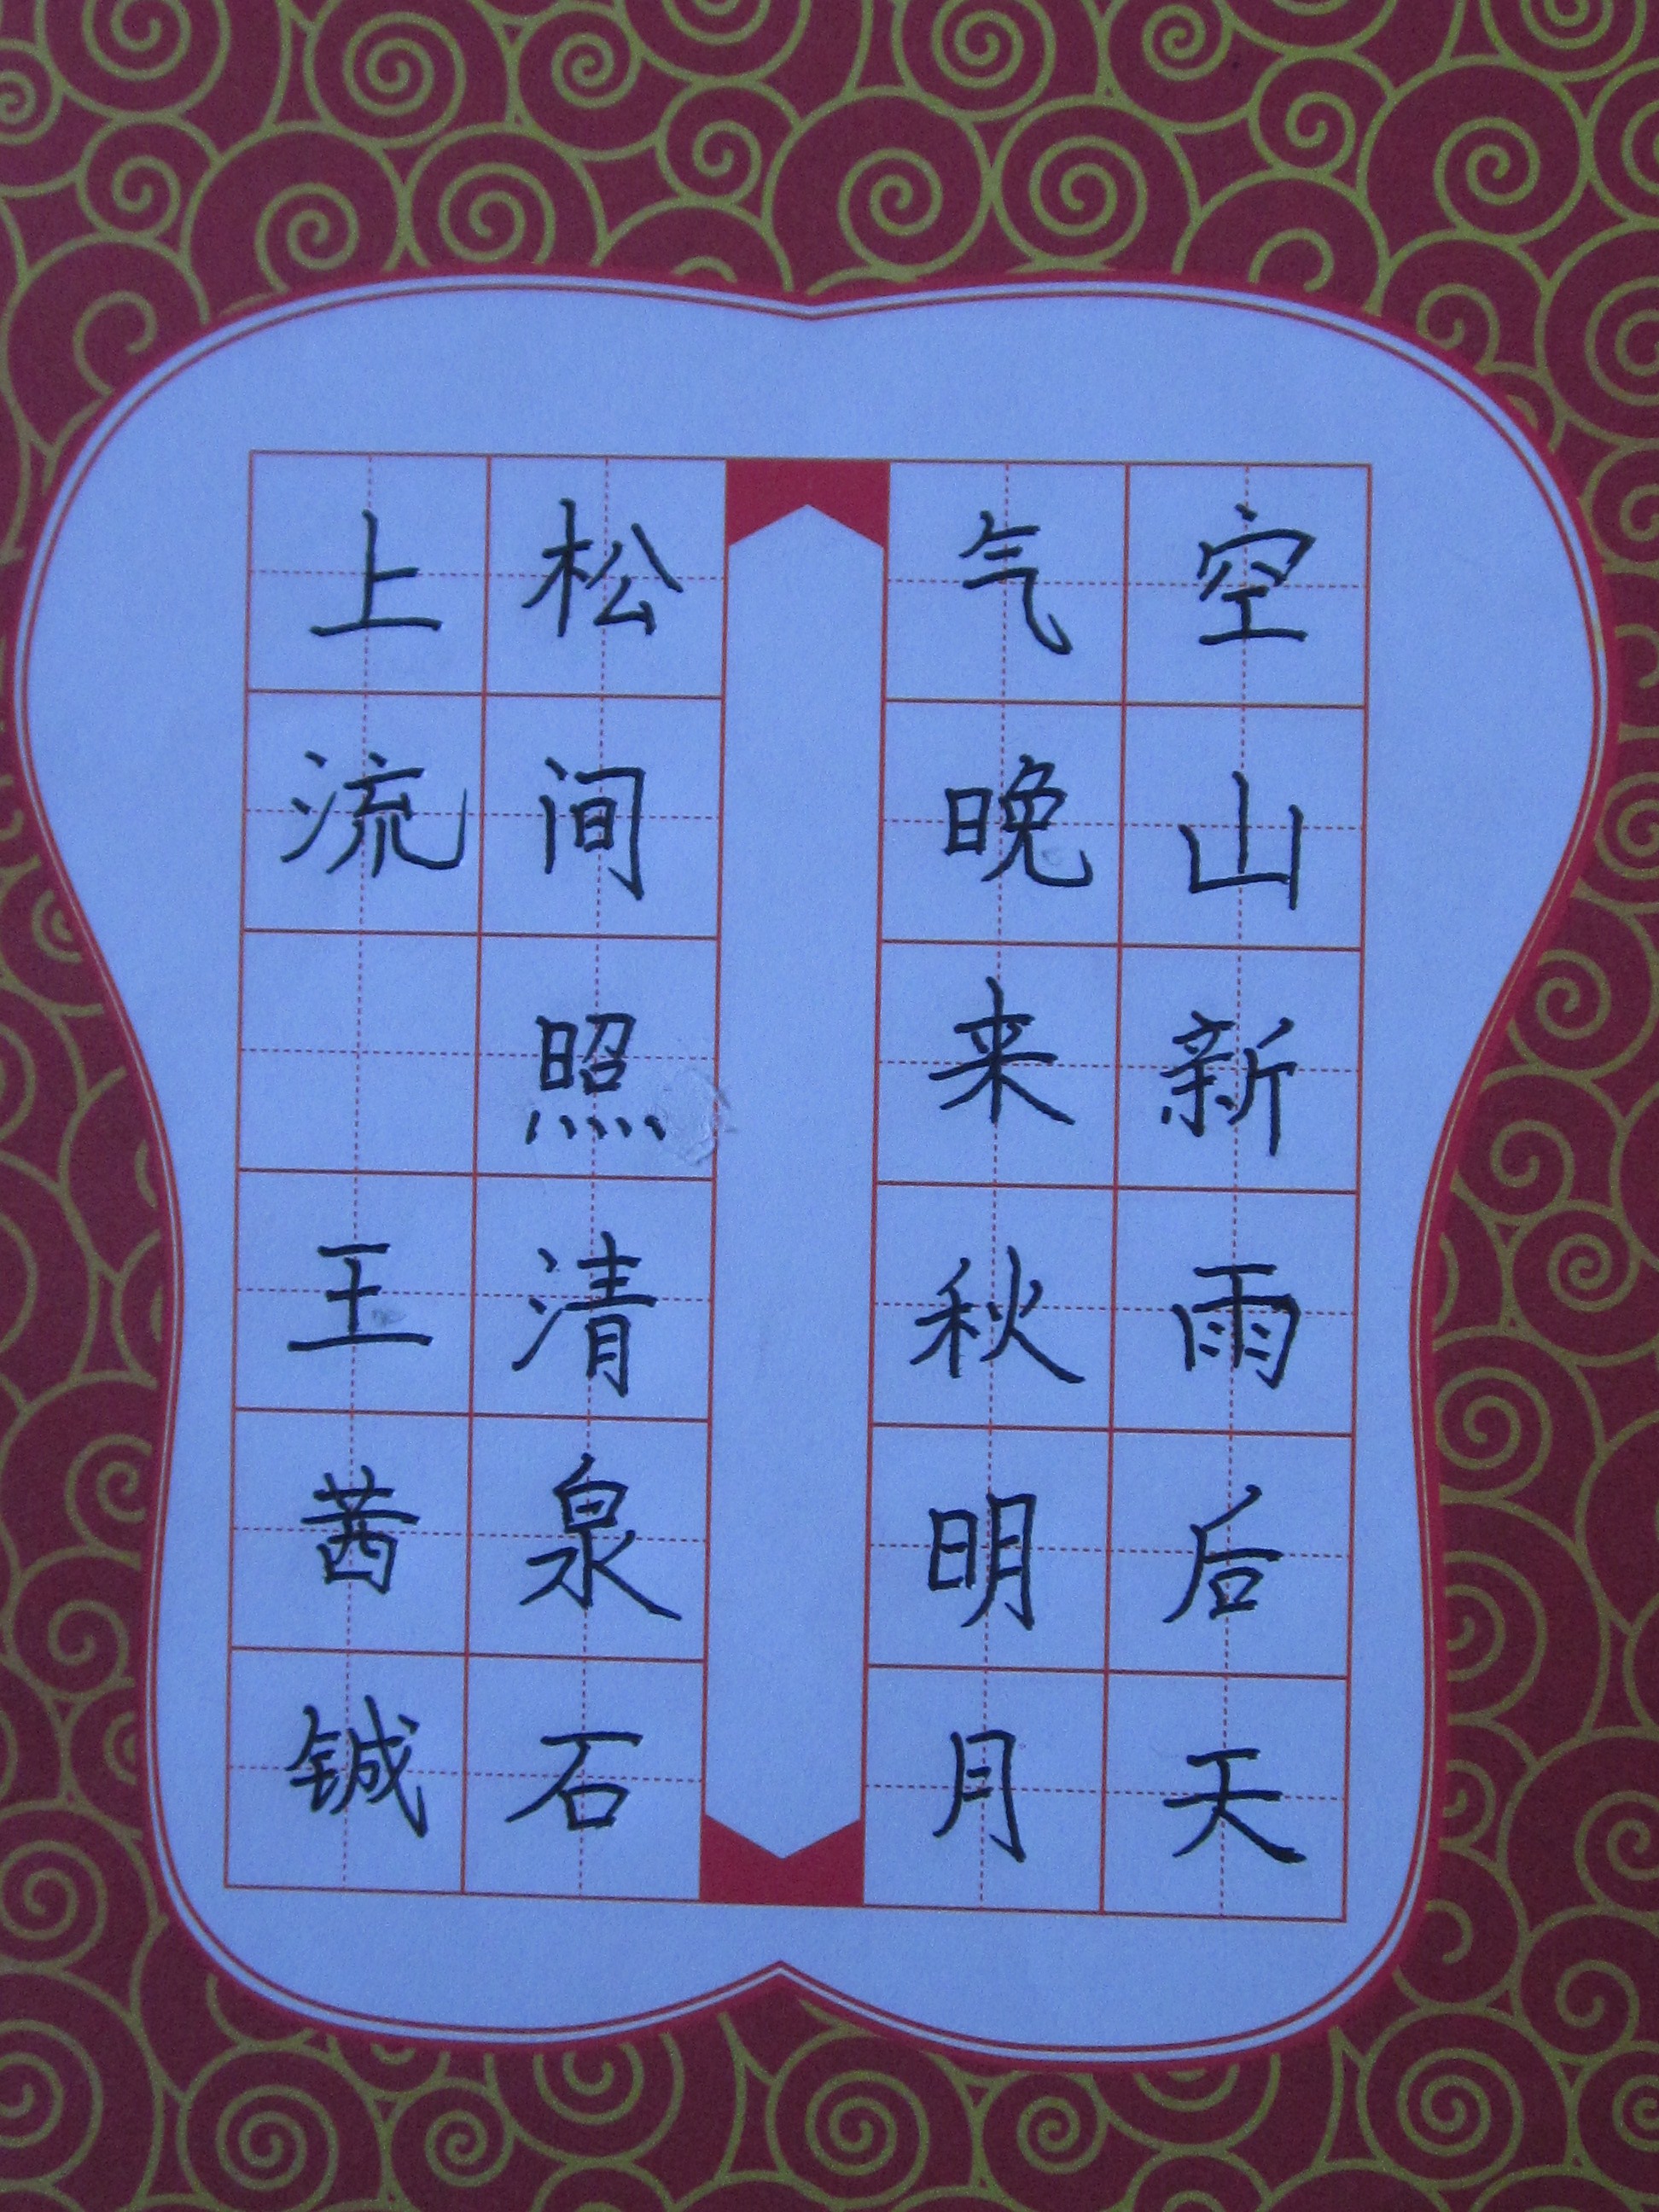 空山新雨后天
气晚来秋明月
松间照清泉石
上流 王茜铖